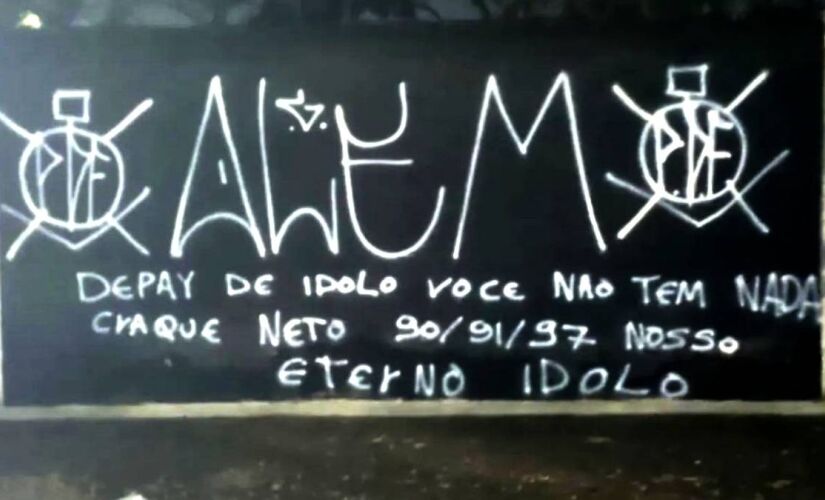 PDF ALEM PDF
DEPAY DE IDOLO VOCE NÃO TEM NADA
CRAQUE NETO 90/91/97 NOSSO
ETERNO IDOLO